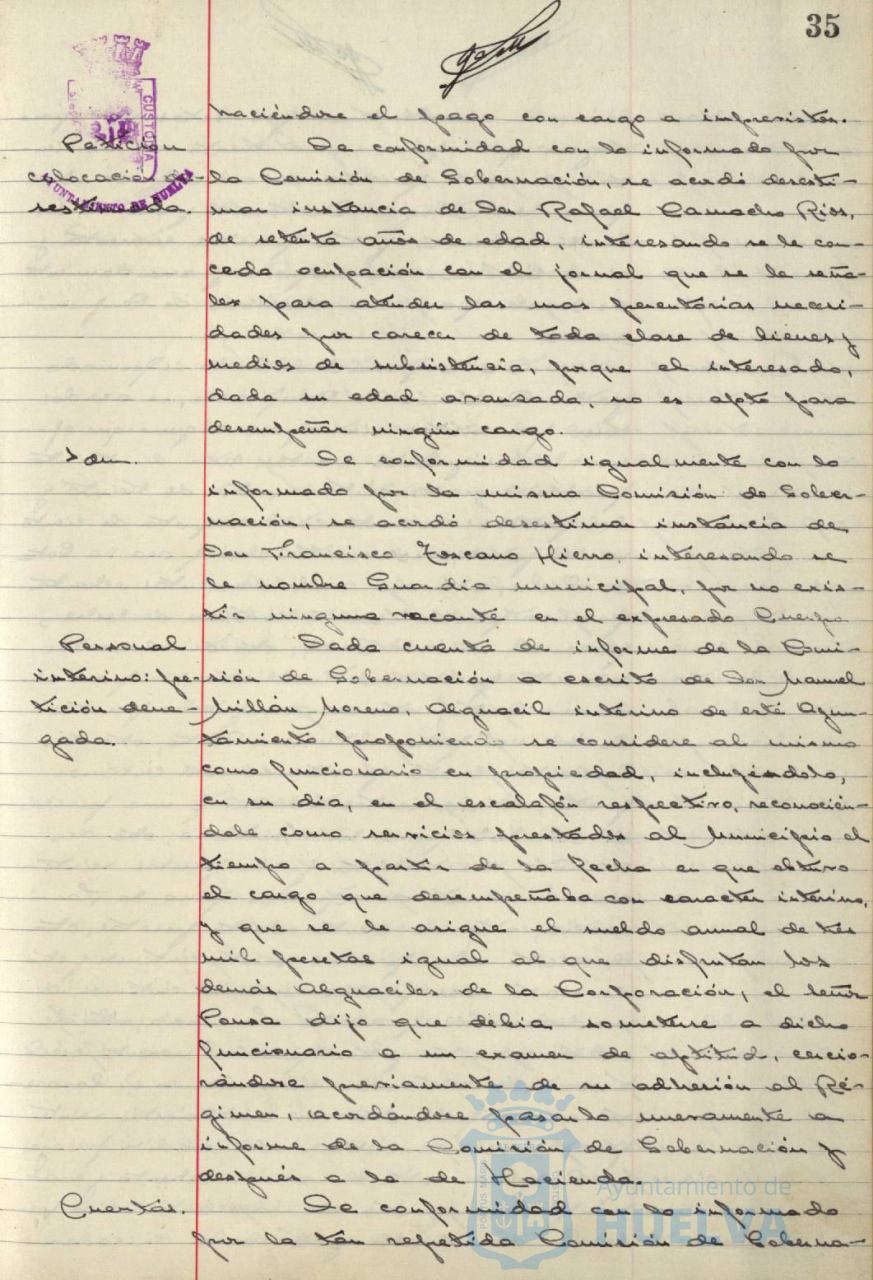 35
haciéndose el pago con cargo a imprevistos.
Petición colocación desestimada.
De conformidad con lo informado por
la Comisión de Gobernación, se acordó desesti-
mar instancia de Don Rafael Camacho Rios,
de setenta años de edad, interesando se le con-
ceda ocupación con el jornal que se le seña-
le para atender las mas perentorias necesi-
dades por carecer de toda clase de bienes y
medios de subsistencia, porque el interesado,
dada su edad avanzada, no es apto para
desempeñar ningún cargo.
Idem.
De conformidad igualmente con lo
informado por la misma Comisión de Gober-
nación, se acordó desestimar instancia de
Don Francisco Toscano Hierro, interesando se
le nombre Guardia municipal, por no exis-
tir ninguna vacante en el expresado Cuerpo
Personal
interino: pe-
tición dene-
gada.
Dada cuenta de informe de la Comi-
sión de Gobernación a escrito de Don Manuel
Millán Moreno, Alguacil interino de este Ayun-
tamiento proponiendo se considere al mismo
como funcionario en propiedad, incluyéndolo,
en su dia, en el escalafón respectivo, reconocién-
dole como servicios prestados al Municipio el
tiempo a partir de la fecha en que obtuvo
el cargo que desempeñaba con caracter interino,
y que se le asigne el sueldo anual de tres
mil pesetas igual al que disfrutan los
demás Alguaciles de la Corporación, el señor
Ponsa dijo que debia someterse a dicho
funcionario a un examen de aptitud, cercio-
rándose previamente de su adhesión al Ré-
gimen, acordándose pasarlo nuevamente a
informe de la Comisión de Gobernación y
después a la de Hacienda.
Cuentas.
De conformidad con lo informado
por la tan repetida Comisión de Goberna-
CUSTODIA
AYUNTAMIENTO DE HUELVA
Ayuntamiento de
HUELVA